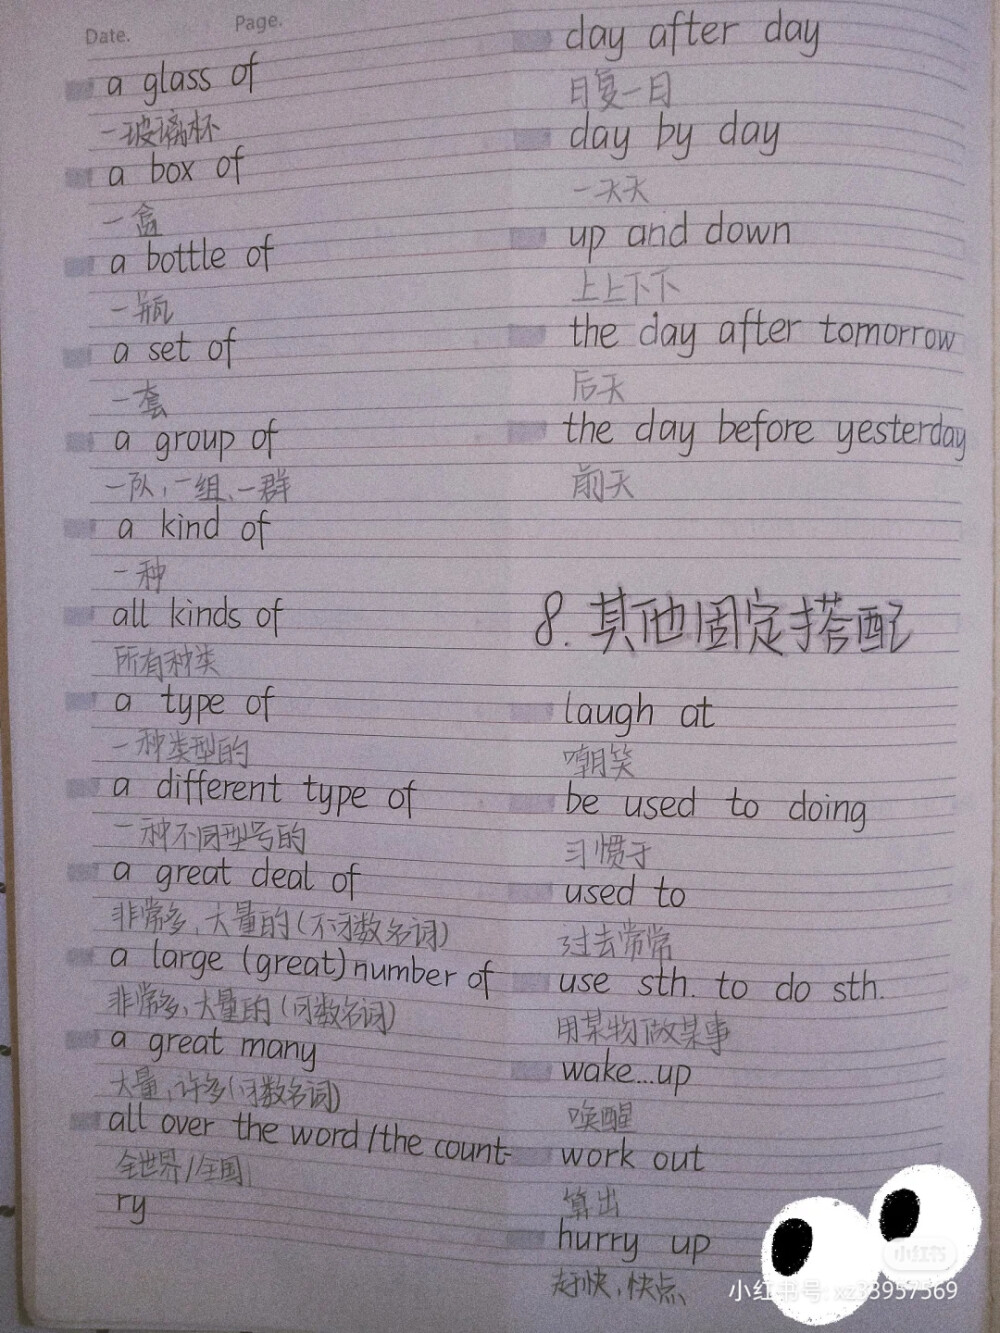 Date.
Page.
a glass of
一玻璃杯
a box of
一盒
a bottle of
一瓶
a set of
一套
a group of
一队,一组,一群
a kind of
一种
all kinds of
所有种类
a type of
一种类型的
a different type of
一种不同型号的
a great deal of
非常多,大量的(不可数名词)
a large (great) number of
非常多,大量的(可数名词)
a great many
大量,许多(可数名词)
all over the word/the count-
全世界/全国
ry
day after day
日复一日
day by day
一天天
up and down
上上下下
the day after tomorrow
后天
the day before yesterday
前天
8.其他固定搭配
laugh at
嘲笑
be used to doing
习惯于
used to
过去常常
use sth. to do sth.
用某物做某事
wake...up
唤醒
work out
算出
hurry up
赶快,快点
小红书
小红书号: xz33957569